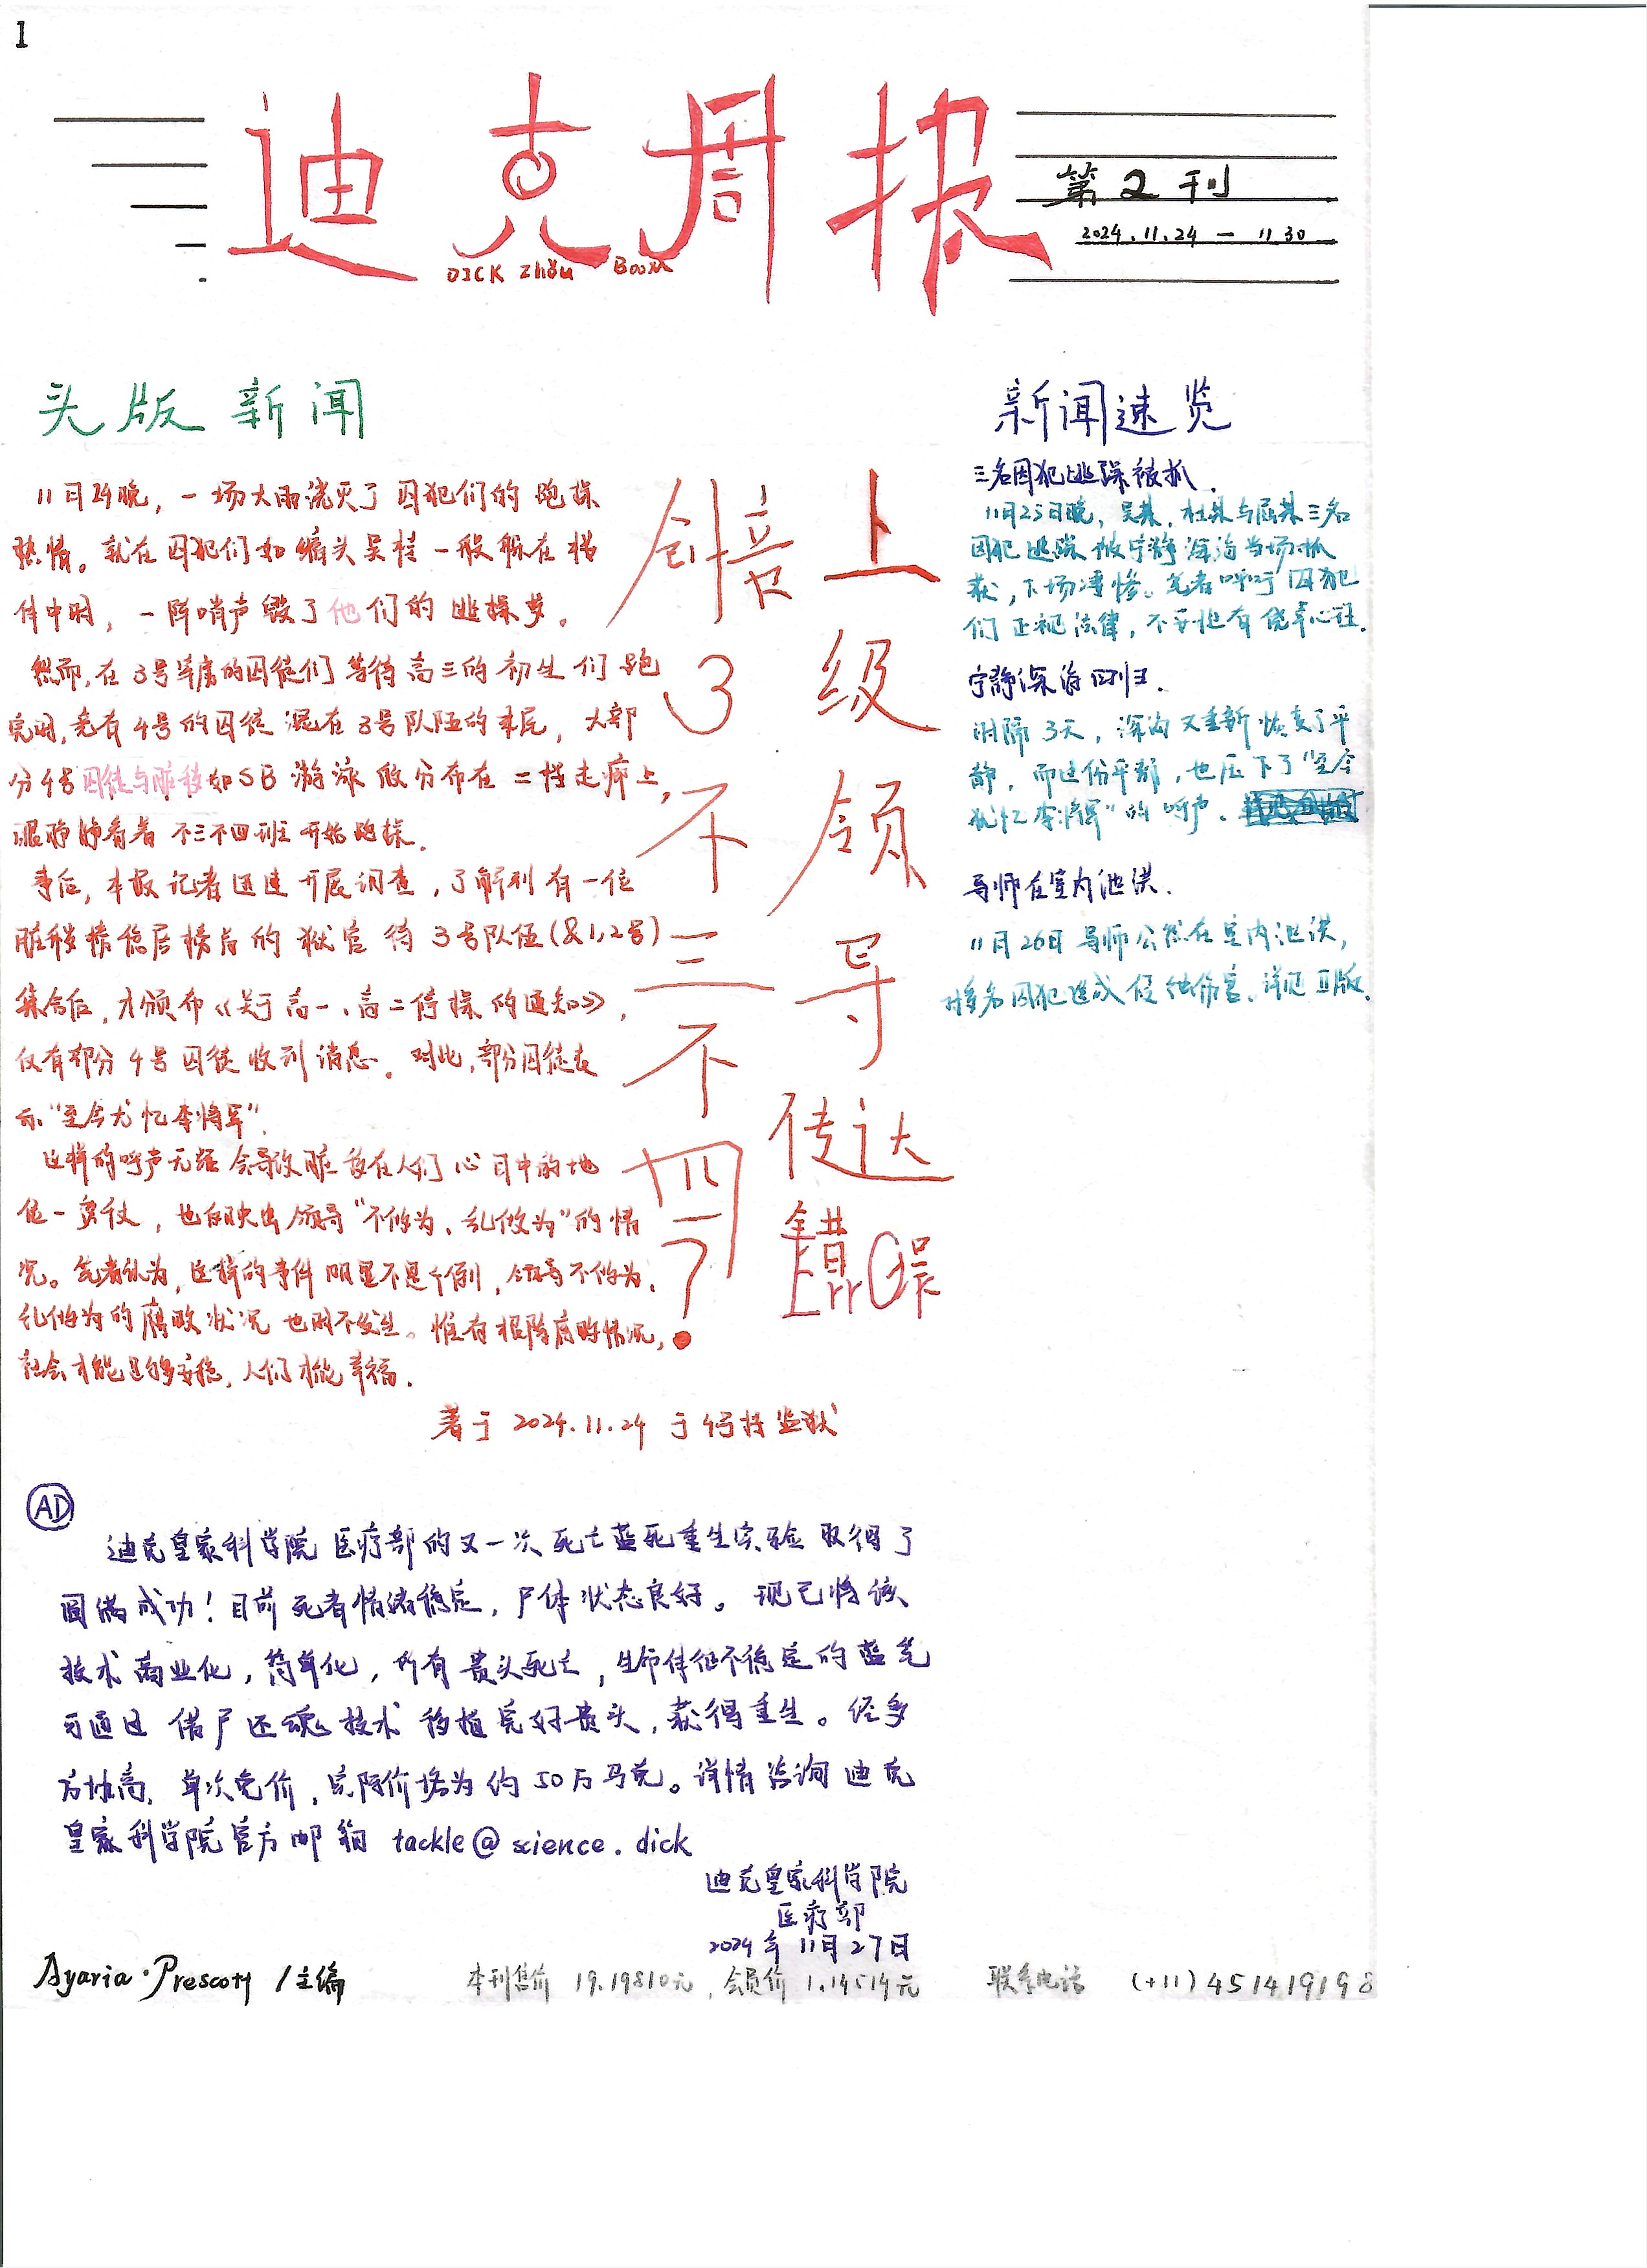 1
迪克周报
DICK Zhǒu Book
第2刊
2024.11.24 — 11.30
头版新闻
11月24晚，一场大雨浇灭了囚犯们的跑操
热情。就在囚犯们如缩头吴桂一般躲在楼
体中时，一阵哨声毁了他们的逃操梦。
然而，在3号牢房的囚徒们等待高三的初生们跑
完时，竟有4号的囚徒混在3号队伍的末尾，大部
分4号囚徒与脏秽如SB游泳般分布在二楼走廊上，
眼睁睁看着不三不四班开始跑操。
事后，本报记者迅速开展调查，了解到有一位
脏秽榜稳居榜首的狱官待3号队伍(&1,2号)
集合后，才颁布《关于高一、高二停操的通知》，
仅有部分4号囚徒收到消息。对此，部分囚徒表
示“至今尤忆李将军”。
这样的呼声无疑会导致脏秽在人们心目中的地
位一落千丈，也反映出领导“不作为、乱做为”的情
况。笔者认为，这样的事件明显不是个例，领导不作为、
乱作为的腐败状况也时不发生。惟有根除腐败情况，
社会才能足够安稳，人们才能幸福。
著于 2024.11.24 于4号楼监狱
上级领导传达错误
剑指3不三不四？
新闻速览
三名囚犯逃跺被抓.
11月25日晚，吴某，杜某与屈某三名
囚犯逃跺被宁静深海当场抓
获，下场凄惨。笔者呼吁囚犯
们正视法律，不要抱有侥幸心理.
宁静深海回归.
时隔3天，深海又重新恢复了平
静，而这份平静，也压下了“至今
犹忆李将军”的呼声.
导师在室内泄洪.
11月26日导师公然在室内泄洪，
对多名囚犯造成侵蚀伤害。详见II版.
AD
迪克皇家科学院医疗部的又一次死亡蓝死重生实验取得了
圆满成功！目前死者情绪稳定，尸体状态良好。现已将该
技术商业化，简单化，所有贵头死亡，生命体征不稳定的蓝笔
可通过借尸还魂技术移植完好贵头，获得重生。经多
方抬高，单次免价，实际价格为约50万马克。详情咨询迪克
皇家科学院官方邮箱 tackle@science.dick
迪克皇家科学院
医疗部
2024年11月27日
Ayaria·Prescott /主编
本刊售价 19.19810元，会员价 1.14514元
联系电话 (+11) 451419198